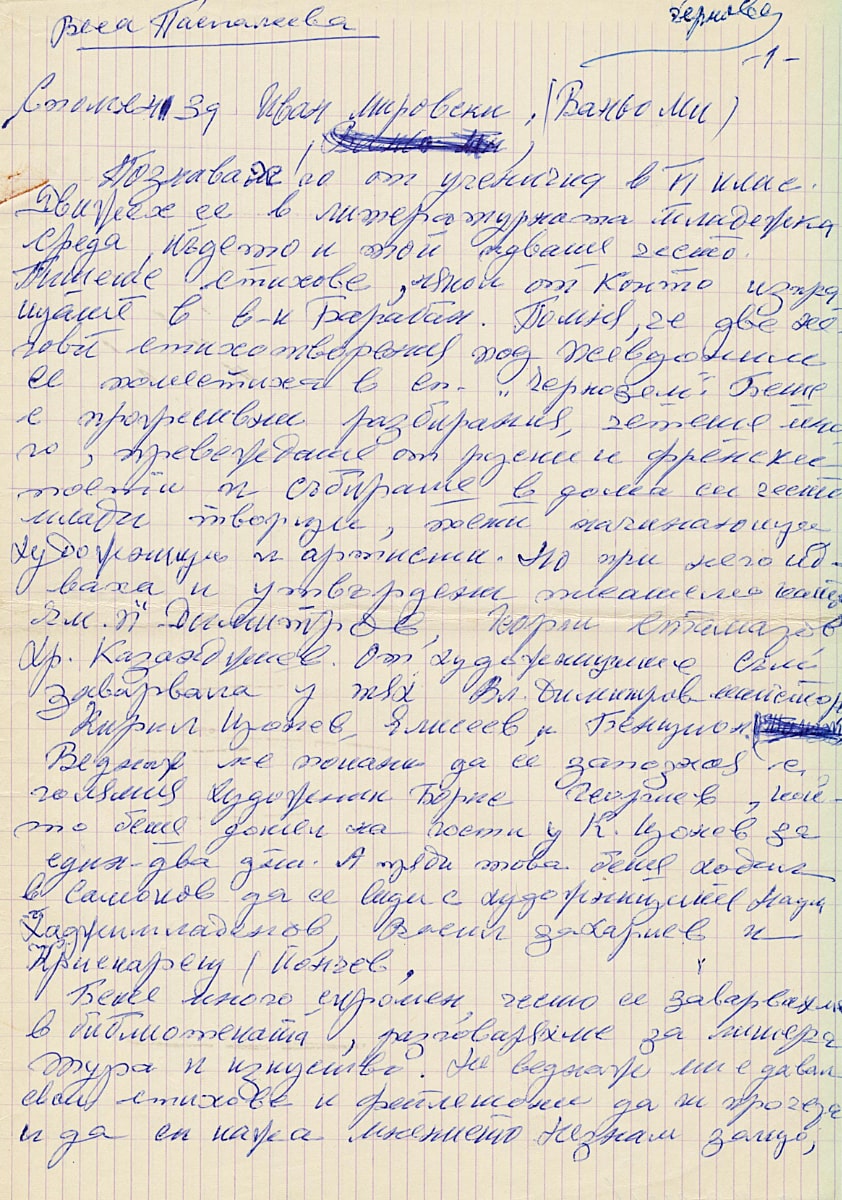 Веса Паспалеева
чернова
-1-
Спомени за Иван Мировски, (Ваньо Ми)
Познавах го от ученичка в II клас.
Движех се в литературната младежка
среда, където и той идваше често.
Пишеше стихове, някои от които изпра
щаше в в-к Барабан. Помня, че две не-
гови стихотворения под псевдоним
се поместиха в сп. "Чернозем". Беше
с прогресивни разбирания, четеше мно
го, превеждаше от руски и френски
поети и събираше в дома си често
млади творци, поети начинающи
художници и артисти. Но при него ид-
ваха и утвърдени писатели като
Ем. П. Димитров, Георги
Хр. Казанджиев. От художниците съм
заварвала у тях Вл. Димитров майстор
Кирил Цонев, Елисеев, и Бенцион
Веднъж ме покани да се запозная с
големия художник Борис Георгиев, кой-
то беше дошел на гости у К. Цонев за
един-два дни. А преди това беше ходил
в Самоков да се види с художниците Наум
Хаджимладенов, Васил Захариев и
Йончев,
Беше много скромен, често се заварвахме
в библиотеката, разговаряхме за литера
тура и изкуство. Не веднъж ми е давал
свои стихове и фейлетони да ги прочета
и да си кажа мнението Незнам защо,